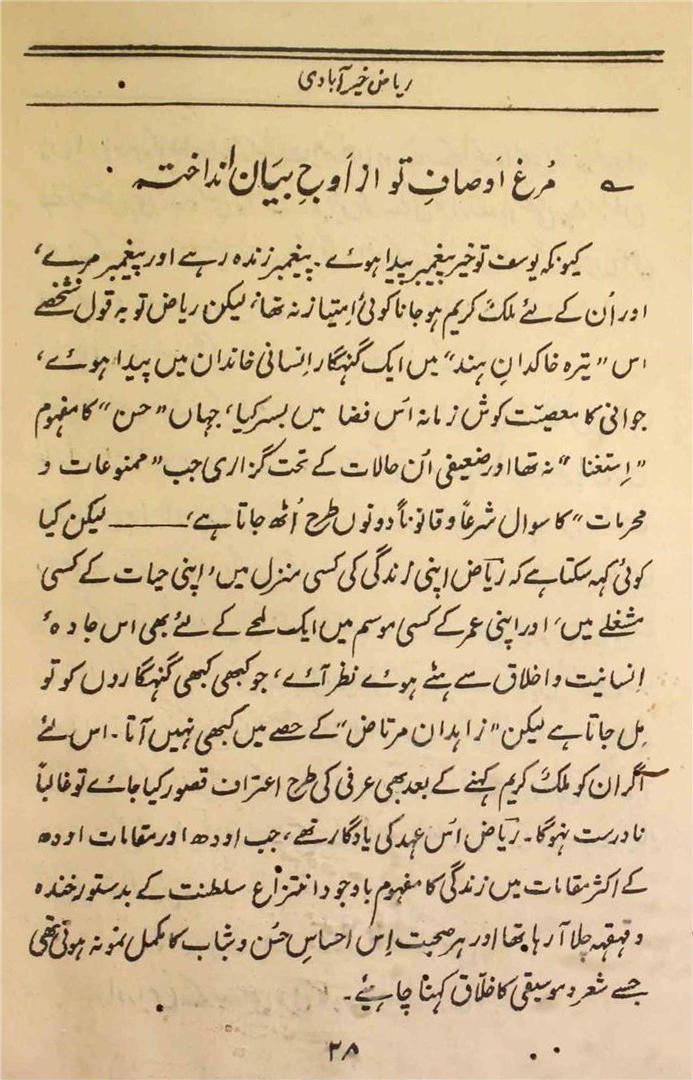 ریاض خیرآبادی
؎ مُرغِ اَوصافِ تو از اَوجِ بیَان انداختہ
کیونکہ یوسف تو خیر پیغمبر پیدا ہوئے ۔ پیغمبر زندہ رہے اور پیغمبر مرے ،
اور اُن کے لئے ملکٌ کریم ہو جانا کوئی امتیاز نہ تھا ، لیکن ریاض تو بہ قول شخصے
اس ”تیرہ خاکدانِ ہند“ میں ایک گنہگار انسانی خاندان میں پیدا ہوئے ،
جوانی کا معصیت کوش زمانہ اس فضا میں بسر کیا ، جہاں ”حسن“ کا مفہوم
”اِستغنا“ نہ تھا اور ضعیفی اُن حالات کے تحت گزاری جب ”ممنوعات و
محرمات“ کا سوال شرعاً و قانوناً دونوں طرح اُٹھ جاتا ہے ، ——— لیکن کیا
کوئی کہہ سکتا ہے کہ ریاؔض اپنی زندگی کی کسی منزل میں ، اپنی حیات کے کسی
مشغلے میں ، اور اپنی عمر کے کسی موسم میں ایک لمحے کے لئے بھی اس جادہٴ
اِنسانیت و اخلاق سے ہٹے ہوئے نظر آئے ، جو کبھی کبھی گنہگاروں کو تو
مِل جاتا ہے لیکن ”زاہدان مرتاض“ کے حصے میں کبھی نہیں آتا ۔ اس لئے
اگر ان کو ملکٌ کریم کہنے کے بعد بھی عرفی کی طرح اعتراف قصور کیا جائے تو غالباً
نادرست نہوگا ۔ ریاؔض اُس عہد کی یادگار تھے ، جب اودھ اور مقامات اودھ
کے اکثر مقامات میں زندگی کا مفہوم باوجود انتزاع سلطنت کے بدستور خندہ
و قہقہہ چلا آ رہا تھا اور ہر صحبت اِس احساسِ حسُن و شباب کا مکمل نمونہ ہوتی تھی
جسے شعر و موسیقی کا خلّاق کہنا چاہیئے ۔
۲۸